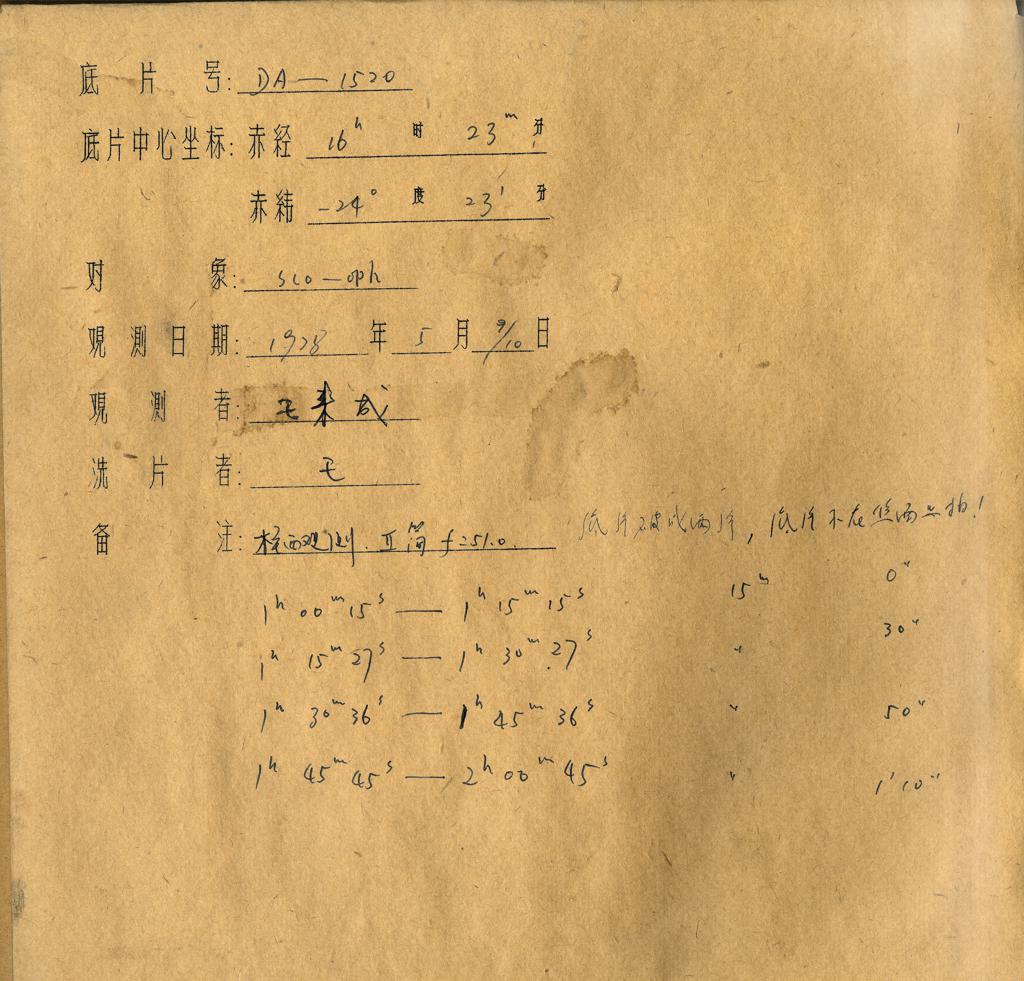 底片号: DA — 1520
底片中心坐标: 赤经 16h 时 23m 分
赤纬 -24° 度 23' 分
对象: sco — oph
观测日期: 1978 年 5 月 9/10 日
观测者: 毛来成
洗片者: 毛
备注: 观测. II 筒 f=51.0.
底片 成两片, 底片不在
1h 00m 15s — 1h 15m 15s 15m 0"
1h 15m 27s — 1h 30m 27s " 30"
1h 30m 36s — 1h 45m 36s " 50"
1h 45m 45s — 2h 00m 45s " 1'10"